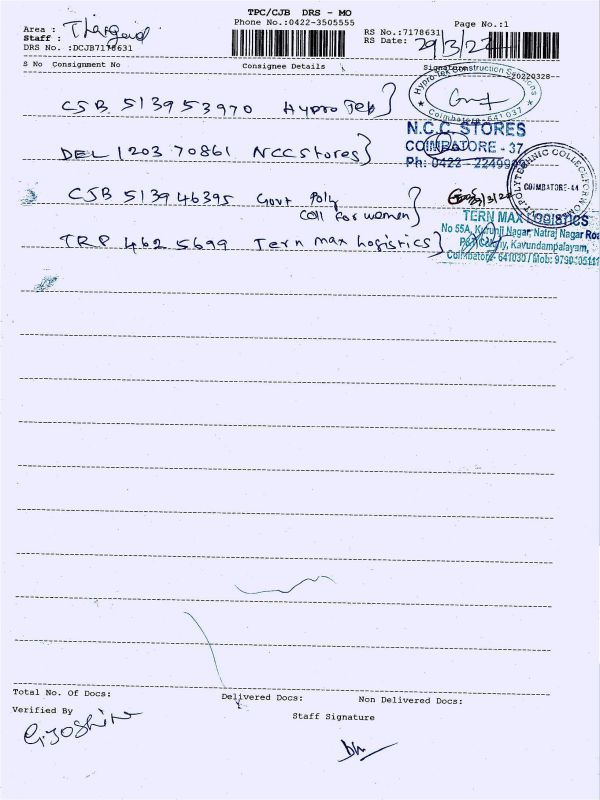 TPC/CJB DRS - MO
Phone No.:0422-3505555
Page No.:1
Area :
Staff :
DRS No. :DCJB7178631
RS No.:7178631
RS Date: 29/3/22
S No Consignment No Consignee Details Signature
20220328
CJB 513953970 Hyprotek
Hypro Tek Construction Solutions
Coimbatore - 641 037
DEL 120370861 NCC Stores
N.C.C. STORES
COIMBATORE - 37
Ph: 0422
CJB 513946395 Govt Poly
Coll for women
POLYTECHNIC COLLEGE FOR WOMEN
COIMBATORE-44
TRP 4625699 Tern max Logistics
TERN MAX LOGISTICS
No 55A, Kurunji Nagar, Natraj Nagar Road
P&T Colony, Kavundampalayam,
Coimbatore - 641030 / Mob:
Total No. Of Docs: Delivered Docs: Non Delivered Docs:
Verified By
Staff Signature